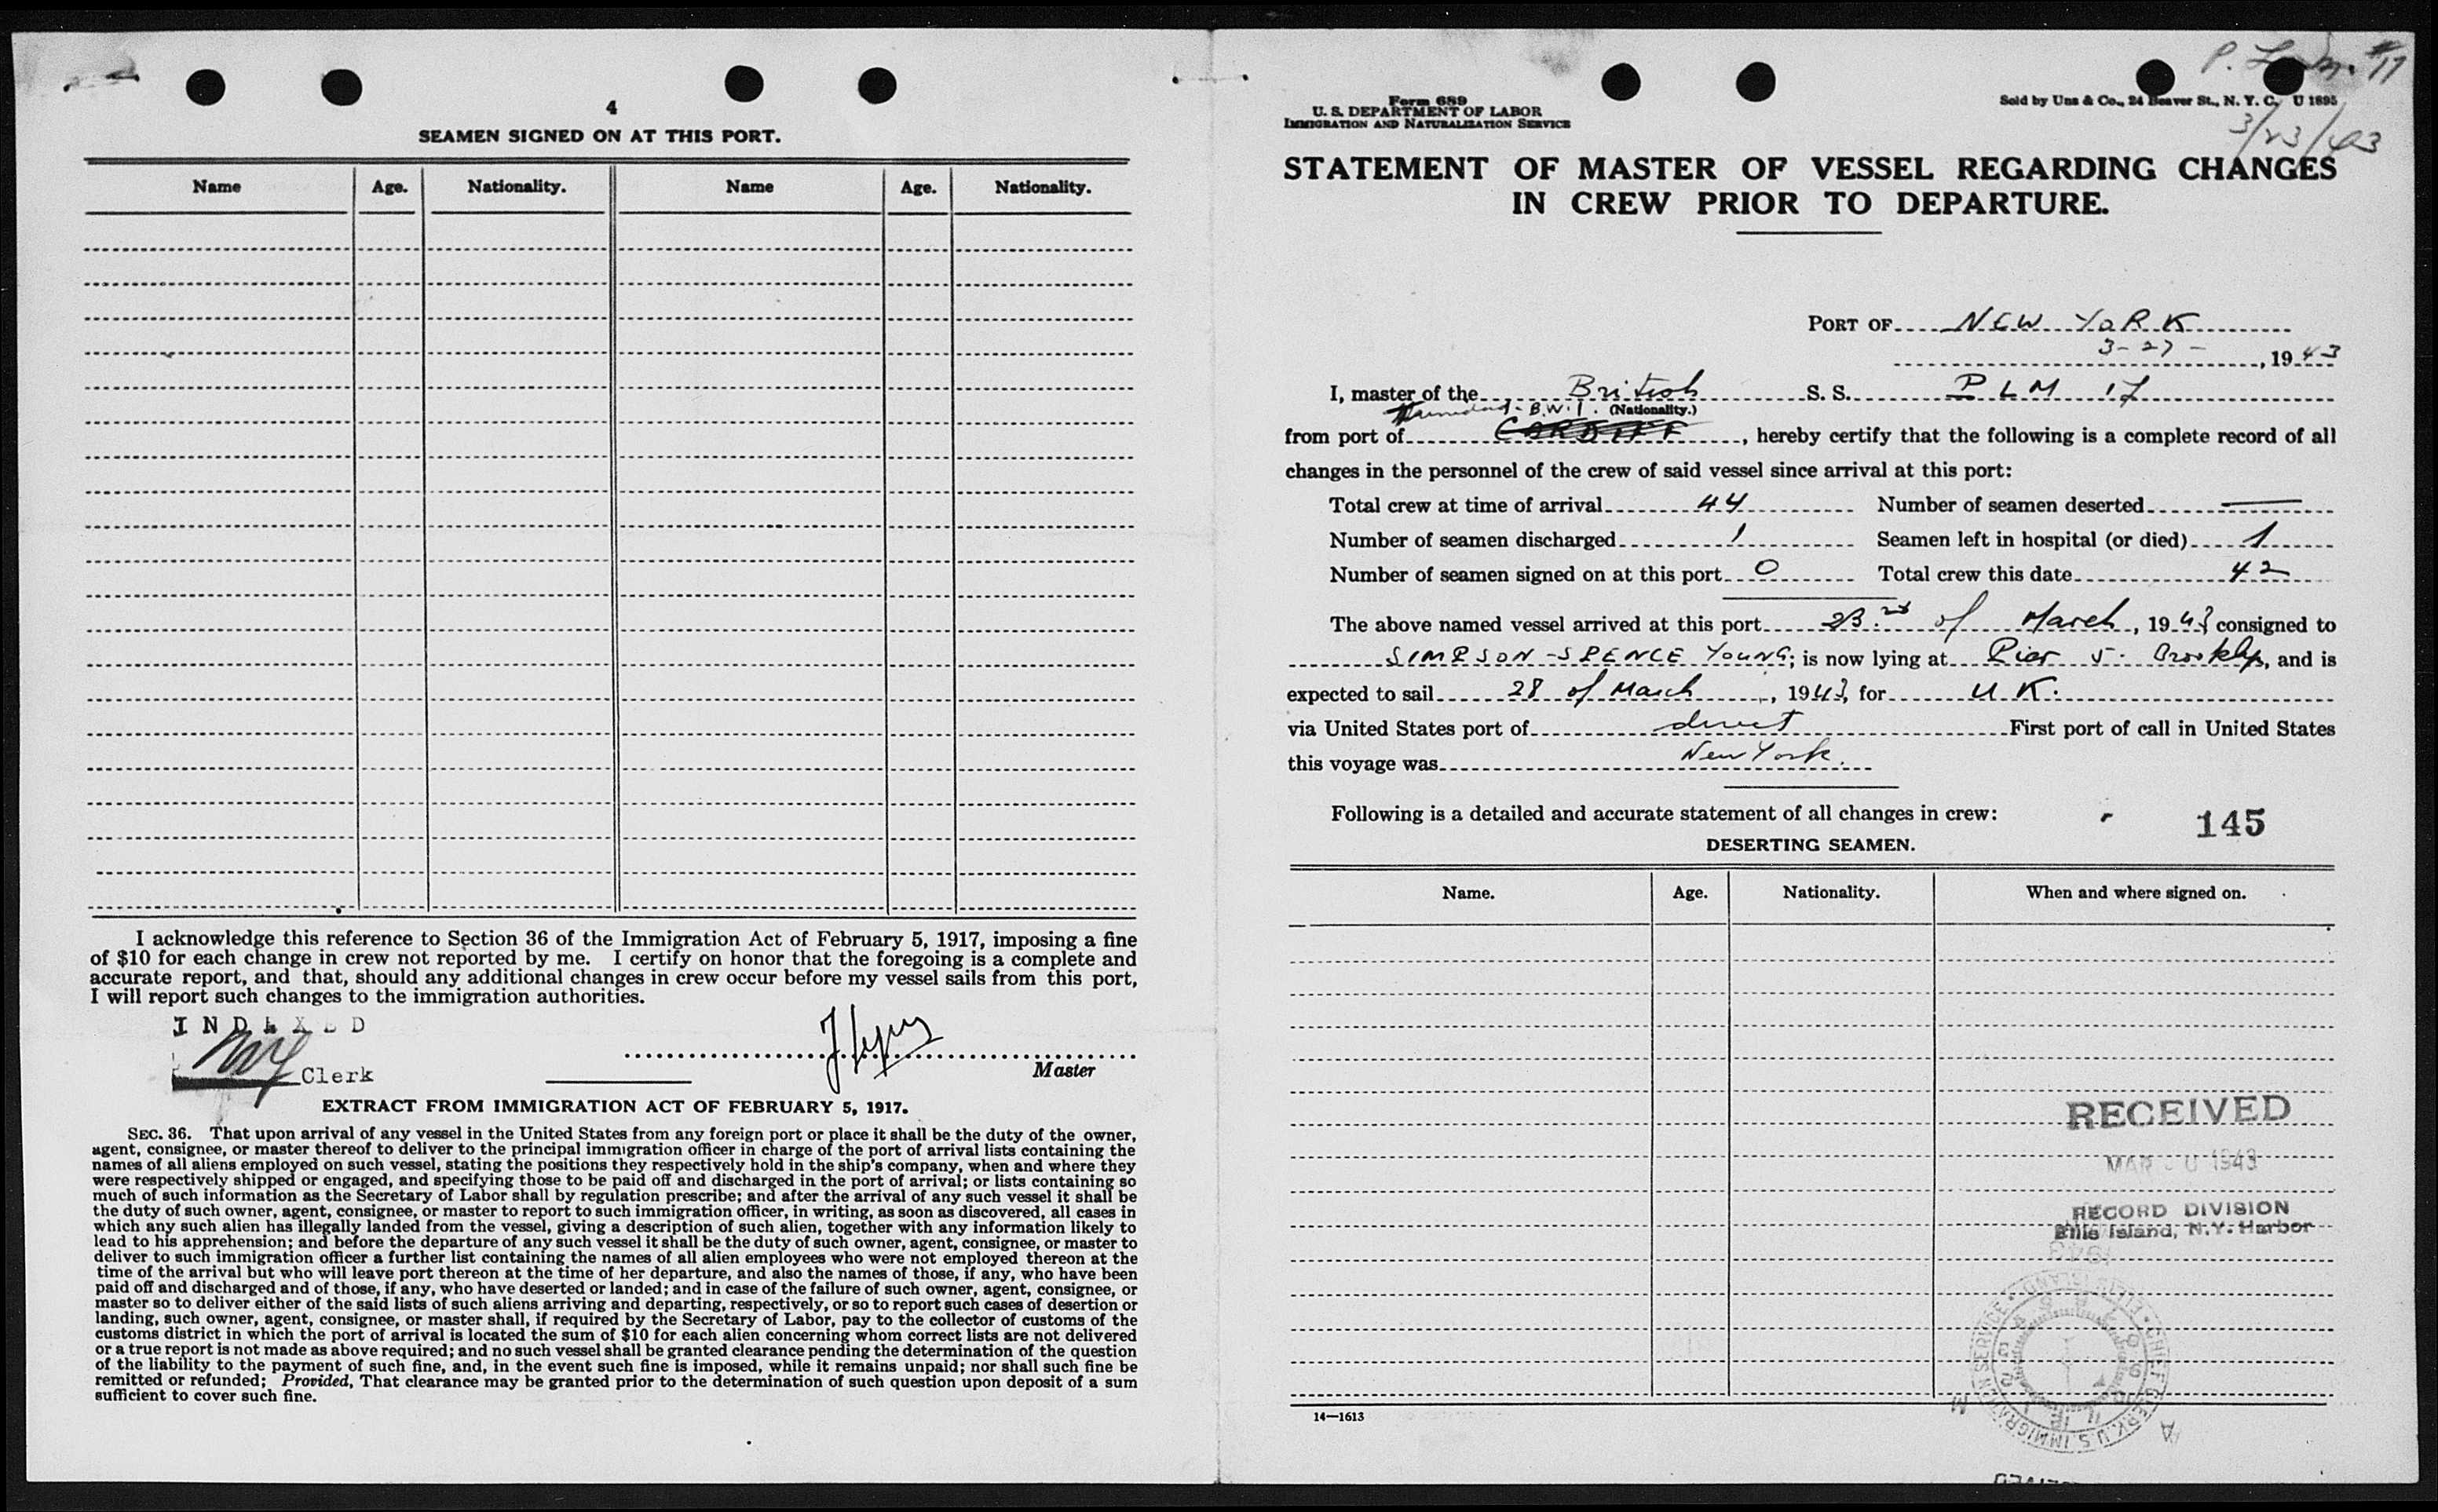 4
SEAMEN SIGNED ON AT THIS PORT.
Name Age. Nationality. Name Age. Nationality.
I acknowledge this reference to Section 36 of the Immigration Act of February 5, 1917, imposing a fine
of $10 for each change in crew not reported by me. I certify on honor that the foregoing is a complete and
accurate report, and that, should any additional changes in crew occur before my vessel sails from this port,
I will report such changes to the immigration authorities.
INDEXED
Clerk
Master
EXTRACT FROM IMMIGRATION ACT OF FEBRUARY 5, 1917.
SEC. 36. That upon arrival of any vessel in the United States from any foreign port or place it shall be the duty of the owner,
agent, consignee, or master thereof to deliver to the principal immigration officer in charge of the port of arrival lists containing the
names of all aliens employed on such vessel, stating the positions they respectively hold in the ship's company, when and where they
were respectively shipped or engaged, and specifying those to be paid off and discharged in the port of arrival; or lists containing so
much of such information as the Secretary of Labor shall by regulation prescribe; and after the arrival of any such vessel it shall be
the duty of such owner, agent, consignee, or master to report to such immigration officer, in writing, as soon as discovered, all cases in
which any such alien has illegally landed from the vessel, giving a description of such alien, together with any information likely to
lead to his apprehension; and before the departure of any such vessel it shall be the duty of such owner, agent, consignee, or master to
deliver to such immigration officer a further list containing the names of all alien employees who were not employed thereon at the
time of the arrival but who will leave port thereon at the time of her departure, and also the names of those, if any, who have been
paid off and discharged and of those, if any, who have deserted or landed; and in case of the failure of such owner, agent, consignee, or
master so to deliver either of the said lists of such aliens arriving and departing, respectively, or so to report such cases of desertion or
landing, such owner, agent, consignee, or master shall, if required by the Secretary of Labor, pay to the collector of customs of the
customs district in which the port of arrival is located the sum of $10 for each alien concerning whom correct lists are not delivered
or a true report is not made as above required; and no such vessel shall be granted clearance pending the determination of the question
of the liability to the payment of such fine, and, in the event such fine is imposed, while it remains unpaid; nor shall such fine be
remitted or refunded; Provided, That clearance may be granted prior to the determination of such question upon deposit of a sum
sufficient to cover such fine.
#17
Form 689
U. S. DEPARTMENT OF LABOR
IMMIGRATION AND NATURALIZATION SERVICE
Sold by Unz & Co., 24 Beaver St., N. Y. C. U 1895
3/23/43
STATEMENT OF MASTER OF VESSEL REGARDING CHANGES
IN CREW PRIOR TO DEPARTURE.
PORT OF NEW YORK
3-27-, 1943
I, master of the British S. S. PLM 17
Trinidad - B.W.I. (Nationality.)
from port of CARDIFF, hereby certify that the following is a complete record of all
changes in the personnel of the crew of said vessel since arrival at this port:
Total crew at time of arrival 44 Number of seamen deserted —
Number of seamen discharged 1 Seamen left in hospital (or died) 1
Number of seamen signed on at this port 0 Total crew this date 42
The above named vessel arrived at this port 23.rd of March, 1943 consigned to
SIMPSON-SPENCE YOUNG; is now lying at Pier 5. Brooklyn, and is
expected to sail 28 of March, 1943, for U K.
via United States port of direct First port of call in United States
this voyage was New York.
Following is a detailed and accurate statement of all changes in crew:
145
DESERTING SEAMEN.
Name. Age. Nationality. When and where signed on.
RECEIVED
MAR 1943
RECORD DIVISION
Ellis Island, N.Y. Harbor
14—1613